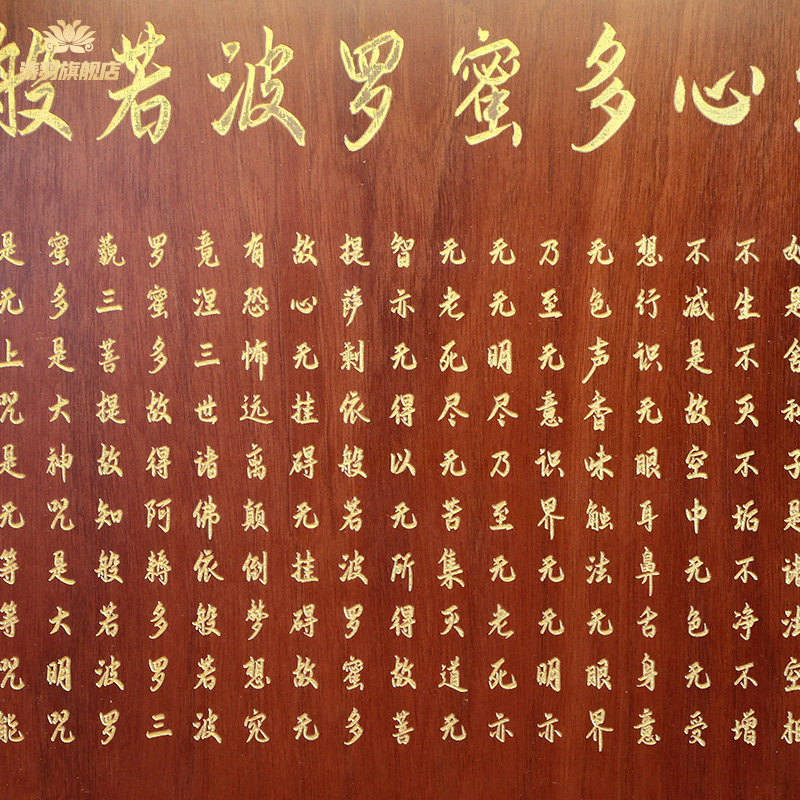 旗舰店
般若波罗蜜多心
如是舍利子是诸法空相
不生不灭不垢不净不增
不减是故空中无色无受
想行识无眼耳鼻舌身意
无色声香味触法无眼界
乃至无意识界无无明亦
无无明尽乃至无老死亦
无老死尽无苦集灭道无
智亦无得以无所得故菩
提萨剩依般若波罗蜜多
故心无挂碍无挂碍故无
有恐怖远离颠倒梦想究
竟涅三世诸佛依般若波
罗蜜多故得阿耨多罗三
藐三菩提故知般若波罗
蜜多是大神咒是大明咒
是无上咒是无等等咒能